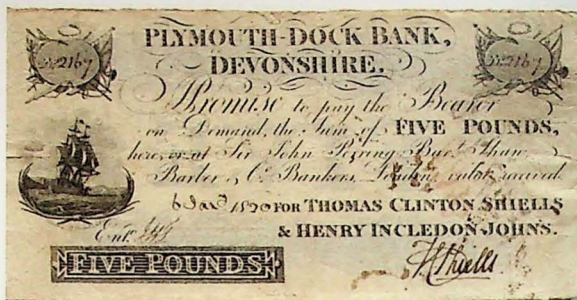 PLYMOUTH-DOCK BANK,
DEVONSHIRE.
2167 2167
Promise to pay the Bearer
on Demand, the Sum of FIVE POUNDS,
here, or at Sir John Perring Bart. Shaw
Barber & Co. Bankers, London value received
1820 FOR THOMAS CLINTON SHIELLS
Entd. & HENRY INCLEDON JOHNS.
FIVE POUNDS Shiells